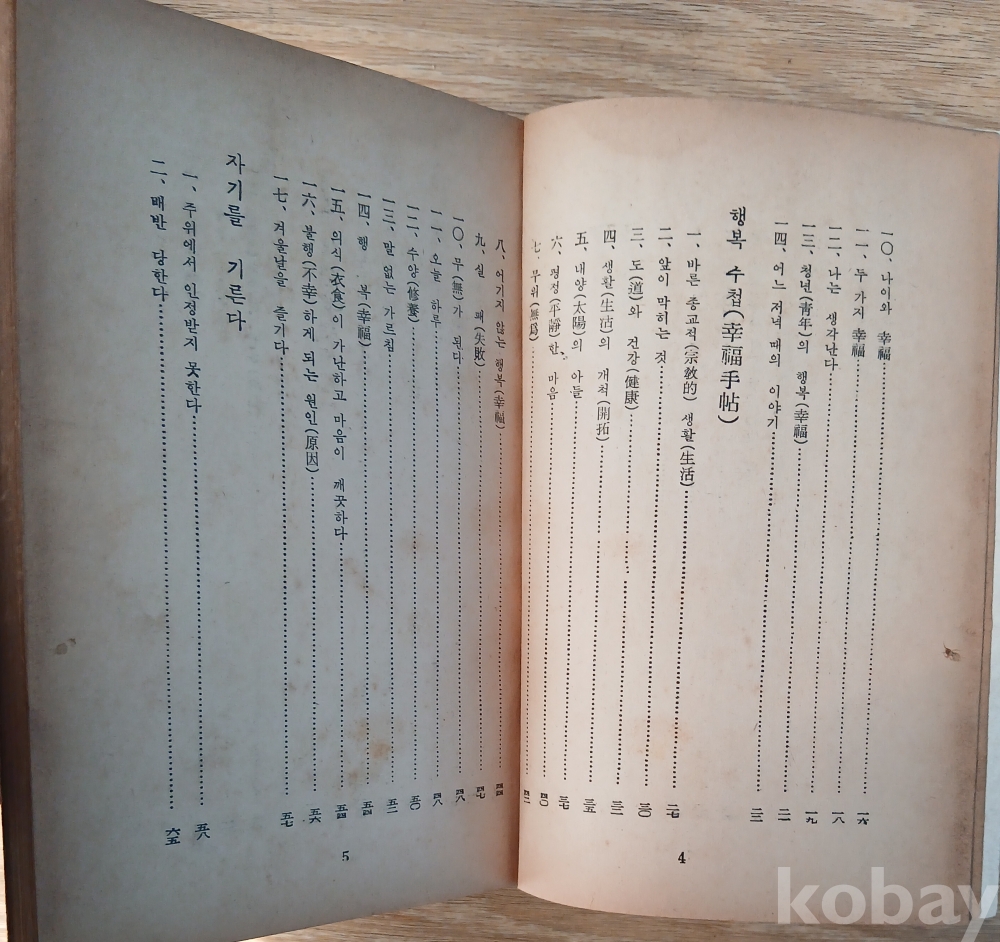 一〇、나이와 幸福……一六
一一、두 가지 幸福……一八
一二、나는 생각난다……一九
一三、청년(靑年)의 행복(幸福)……二一
一四、어느 저녁 때의 이야기……二三
행복 수첩(幸福手帖)
一、바른 종교적(宗教的) 생활(生活)……二七
二、앞이 막히는 것……三〇
三、도(道)와 건강(健康)……三二
四、생활(生活)의 개척(開拓)……三五
五、내양(太陽)의 아들……三七
六、평정(平靜)한 마음……四〇
七、무위(無爲)……四二
4
八、어기지 않는 행복(幸福)……四四
九、실 패(失敗)……四七
一〇、무(無)가 된다……四八
一一、오늘 하루……四八
一二、수양(修養)……五〇
一三、말 없는 가르침……五二
一四、행 복(幸福)……五四
一五、의식(衣食)이 가난하고 마음이 깨끗하다……五四
一六、불행(不幸)하게 되는 원인(原因)……五六
一七、겨울날을 즐기다……五七
자기를 기른다
一、주위에서 인정받지 못한다……五八
二、배반 당한다……六五
5
kobay